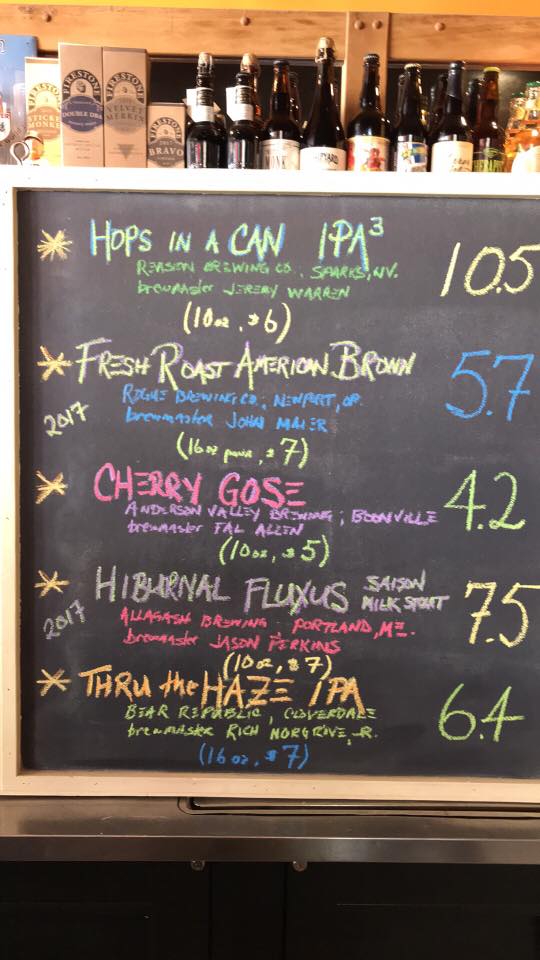 FIRESTONE
STICKEE MONKEE
FIRESTONE
DOUBLE DBA
FIRESTONE
VELVET MERKIN
FIRESTONE
2017
BRAVO
HOPS IN A CAN IPA³
REVISION BREWING CO., SPARKS, NV.
brewmaster JEREMY WARREN
10.5
(10oz, $6)
FRESH ROAST AMERICAN BROWN
2017
ROGUE BREWING CO., NEWPORT, OR.
brewmaster JOHN MAIER
5.7
(16oz pour, $7)
CHERRY GOSE
ANDERSON VALLEY BREWING, BOONVILLE
brewmaster FAL ALLEN
4.2
(10oz, $5)
HIBURNAL FLUXUS SAISON MILK STOUT
2017
ALLAGASH BREWING PORTLAND, ME.
brewmaster JASON PERKINS
7.5
(10oz, $7)
THRU the HAZE IPA
BEAR REPUBLIC, CLOVERDALE
brewmaster RICH NORGROVE, JR.
6.4
(16oz, $7)